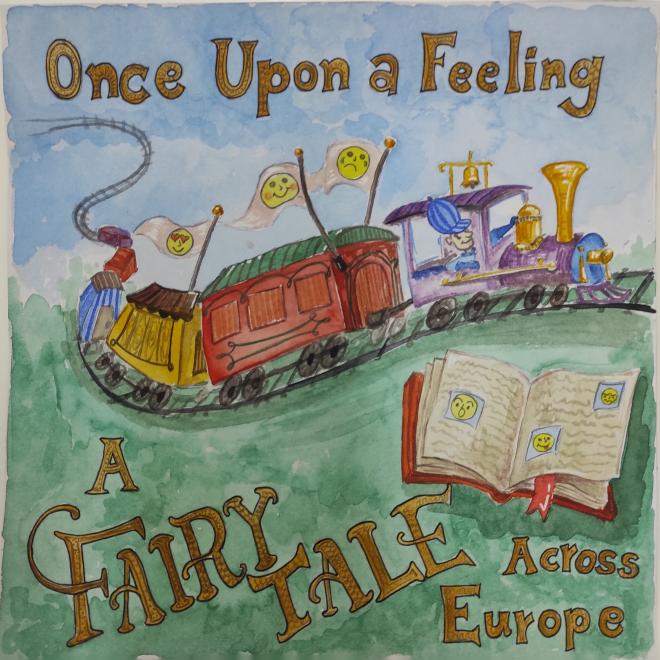 Once Upon a Feeling
A
FAIRY TALE
Across
Europe